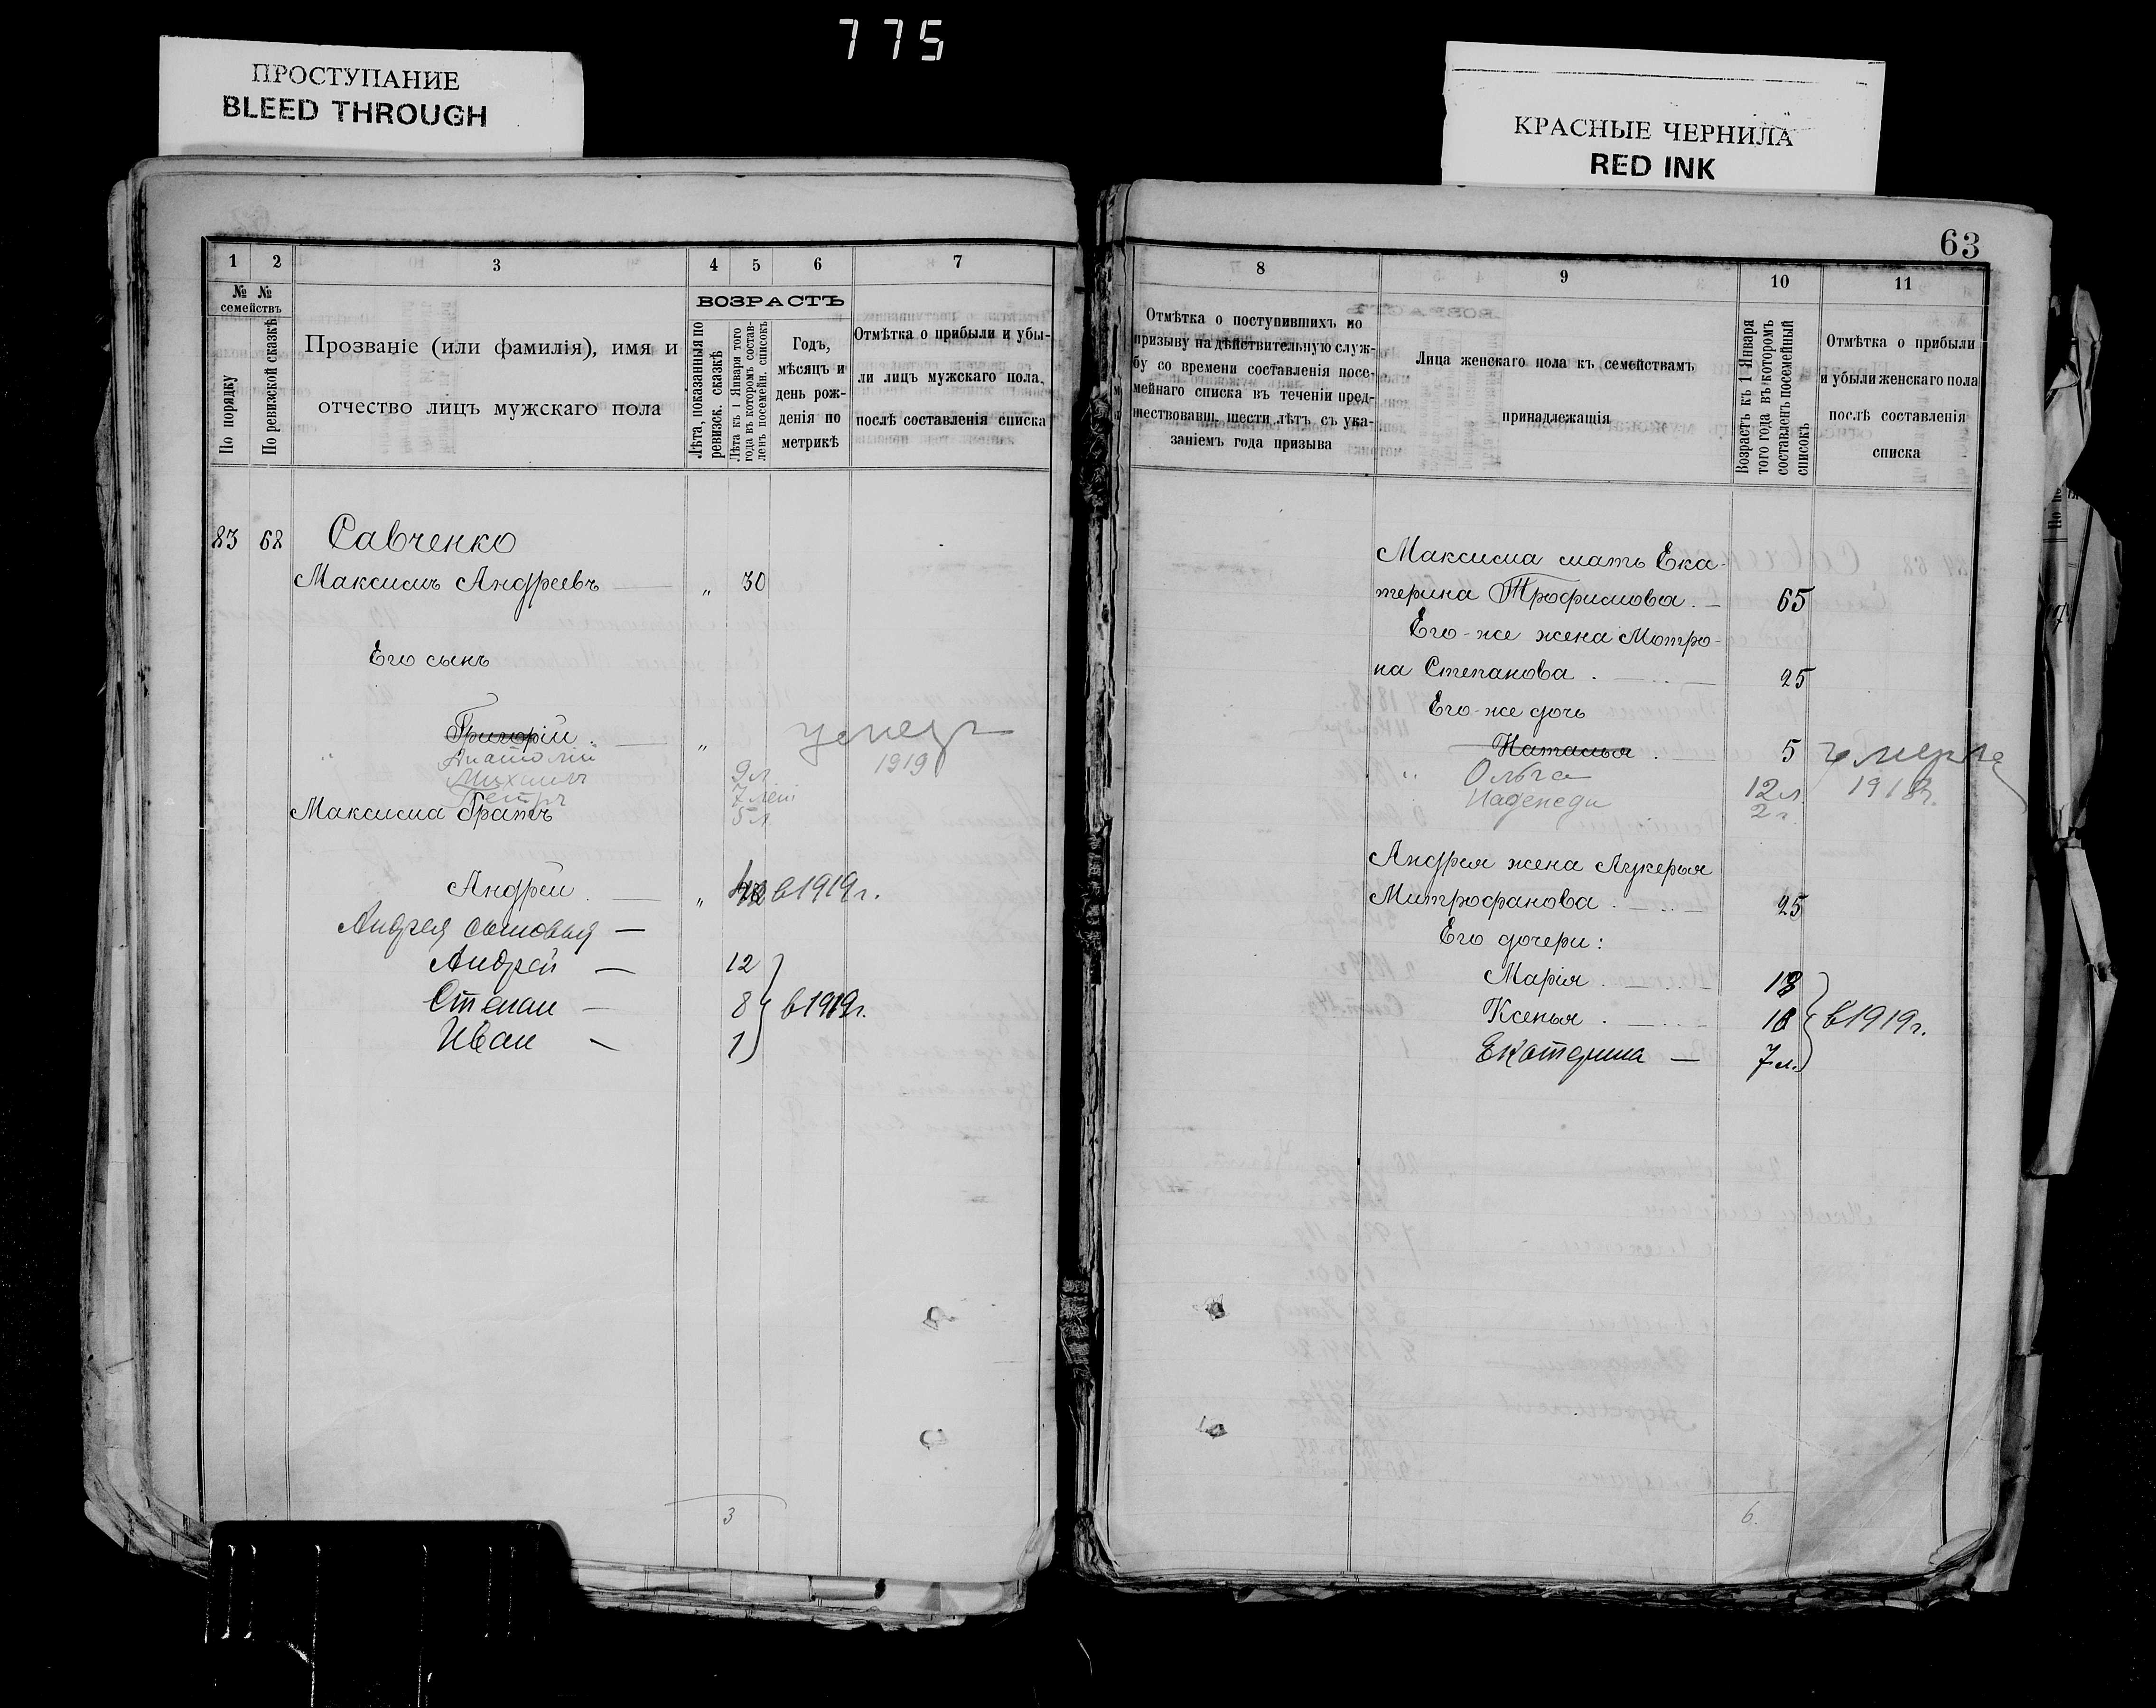 775
ПРОСТУПАНИЕ
BLEED THROUGH
КРАСНЫЕ ЧЕРНИЛА
RED INK
1 2 3 4 5 6 7
№ № семействъ
По порядку
По ревизской сказкѣ
Прозваніе (или фамилія), имя и
отчество лицъ мужскаго пола
ВОЗРАСТЪ
Лѣта, показанныя по
ревизск. сказкѣ
Лѣта къ 1 Января того
года въ которомъ состав-
ленъ посемейн. списокъ
Годъ,
мѣсяцъ и
день рож-
денія по
метрикѣ
Отмѣтка о прибыли и убы-
ли лицъ мужскаго пола,
послѣ составленія списка
83 62 Савченко
Максимъ Андреевъ — „ 30
Его сынъ
Григорій . — „ умеръ
1919
Анатолій 9 л.
Михаилъ 7 лет
Петръ 5 л
Максима братъ
Андрей . — „ 42 в 1919 г.
Андрея сыновья —
Андрей — 12
Степан — 8 в 1919 г.
Иван — 1
3
63
8 9 10 11
Отмѣтка о поступившихъ по
призыву на дѣйствительную служ-
бу со времени составленія посе-
мейнаго списка въ теченіи пред-
шествовавш. шести лѣтъ съ ука-
заніемъ года призыва
Лица женскаго пола къ семействамъ
принадлежащія
Возрастъ къ 1 Января
того года въ которомъ
составленъ посемейный
списокъ
Отмѣтка о прибыли
и убыли женскаго пола
послѣ составленія
списка
Максима мать Ека-
терина Трофимова . — 65
Его-же жена Мотро-
на Степанова . — 25
Его-же дочь
Наталья . 5 умерла
Ольга 12 л. 1918 г.
Надежда 2 г.
Андрея жена Лукерья
Митрофанова . — 25
Его дочери:
Марія . — 13
Ксенья . — 10 в 1919 г.
Екатерина — 7 л.
6.